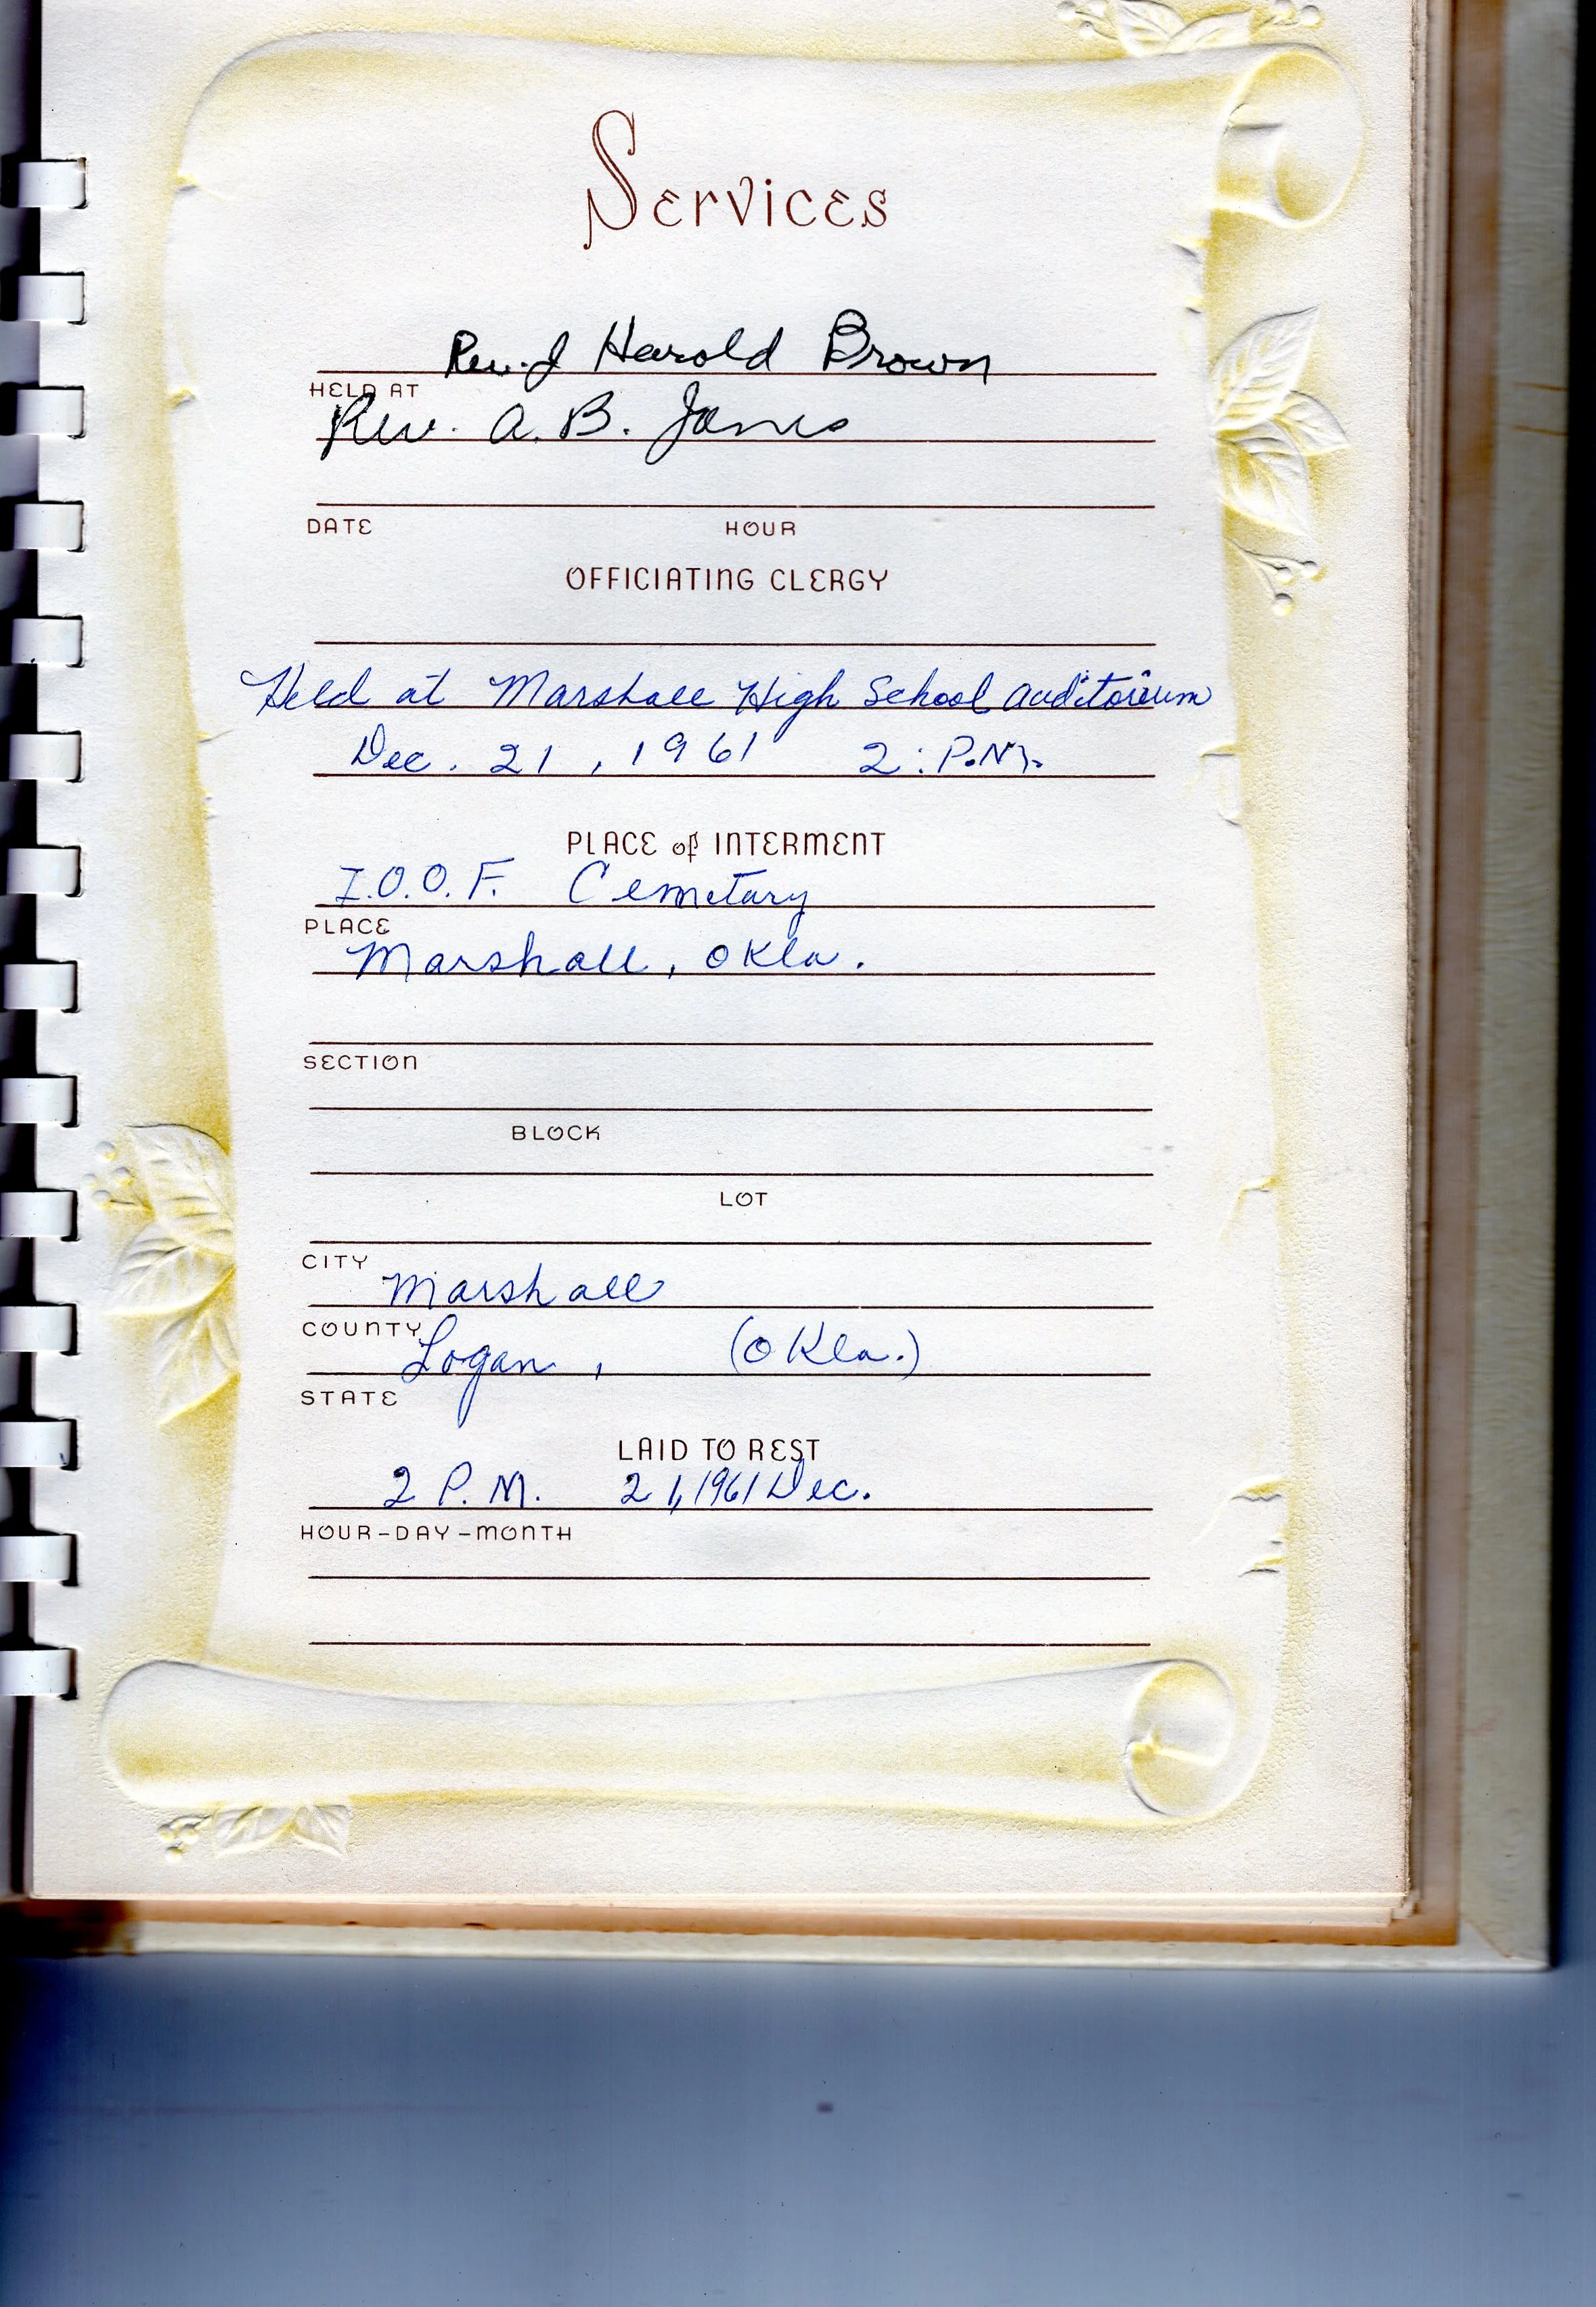 Services
Rev. J Harold Brown
HELD AT
Rev. A. B. Jones
DATE HOUR
OFFICIATING CLERGY
Held at Marshall High School auditorium
Dec. 21, 1961 2: P.M.
PLACE of INTERMENT
I.O.O.F. Cemetary
PLACE
Marshall, Okla.
SECTION
BLOCK
LOT
CITY
Marshall
COUNTY
Logan, (Okla.)
STATE
LAID TO REST
2 P.M. 21, 1961 Dec.
HOUR-DAY-MONTH